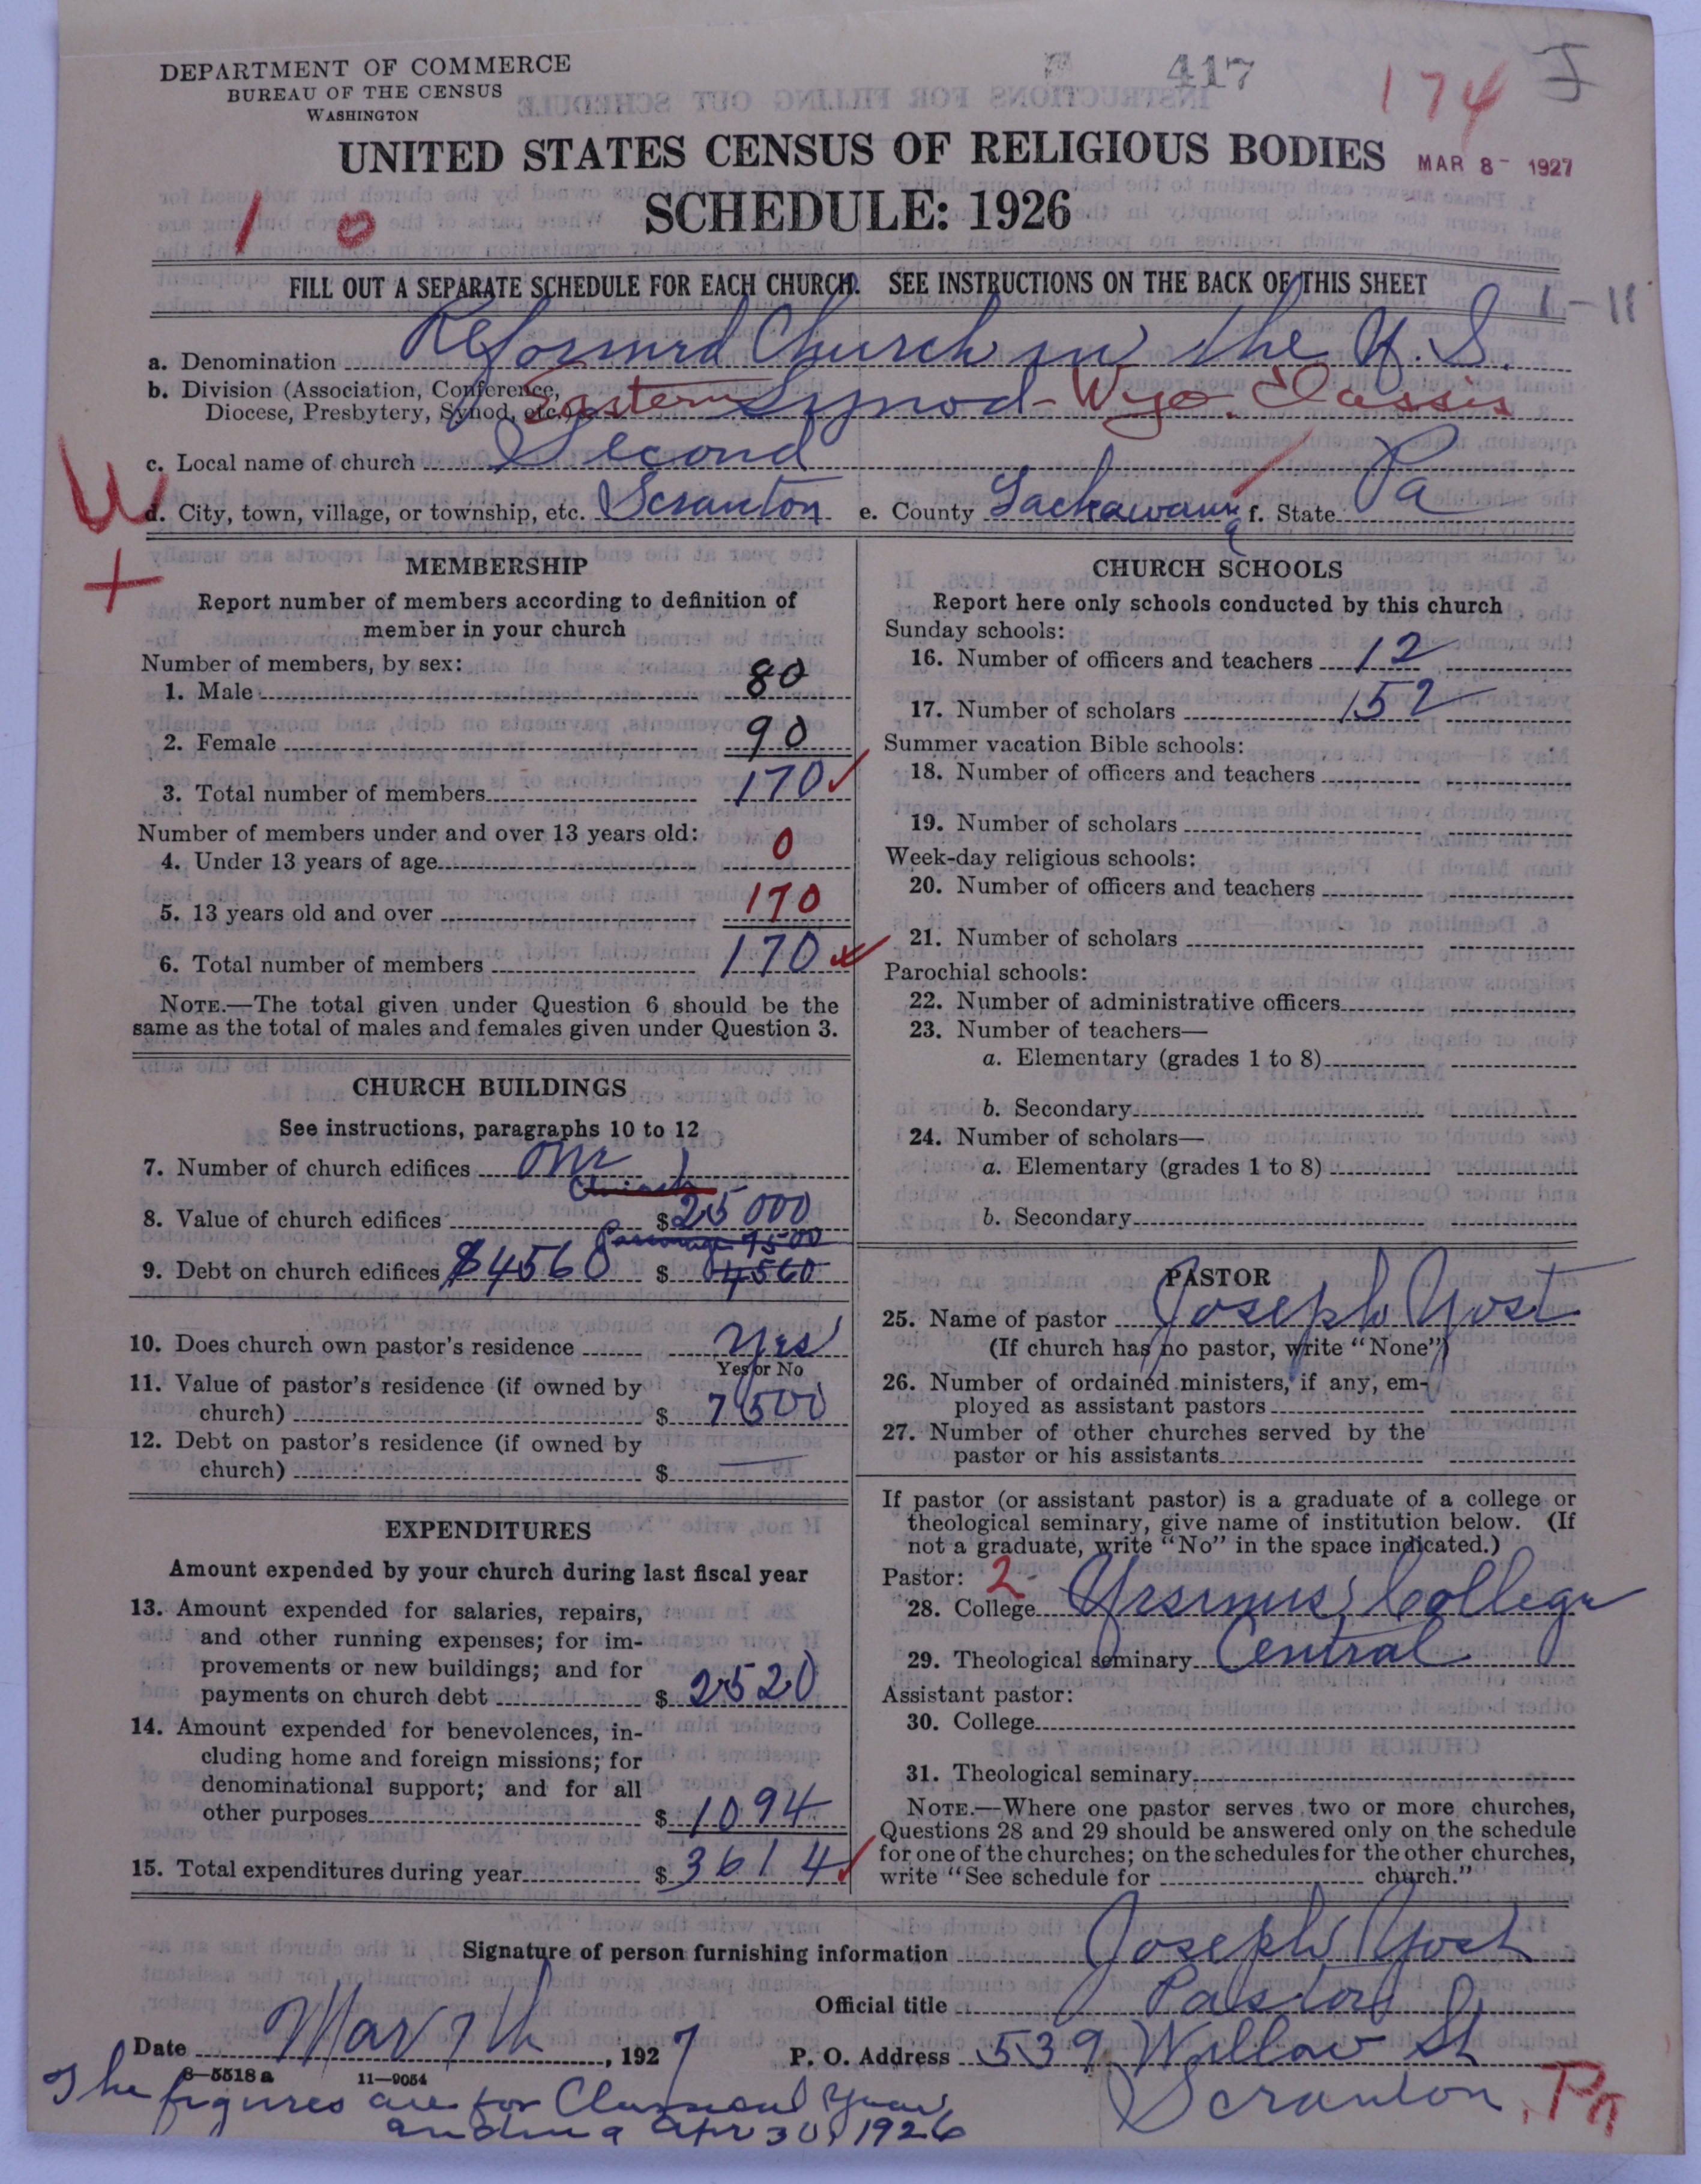 DEPARTMENT OF COMMERCE
BUREAU OF THE CENSUS
WASHINGTON
417
174
UNITED STATES CENSUS OF RELIGIOUS BODIES
MAR 8 - 1927
SCHEDULE: 1926
1 0
FILL OUT A SEPARATE SCHEDULE FOR EACH CHURCH. SEE INSTRUCTIONS ON THE BACK OF THIS SHEET
1-11
a. Denomination Reformed Church in the U.S.
b. Division (Association, Conference,
Diocese, Presbytery, Synod, etc.) Eastern Synod - Wyo. Classis
c. Local name of church Second
d. City, town, village, or township, etc. Scranton e. County Lackawanna f. State Pa
W
+
MEMBERSHIP
Report number of members according to definition of
member in your church
Number of members, by sex:
1. Male 80
2. Female 90
3. Total number of members 170
Number of members under and over 13 years old:
4. Under 13 years of age 0
5. 13 years old and over 170
6. Total number of members 170
NOTE.—The total given under Question 6 should be the
same as the total of males and females given under Question 3.
CHURCH BUILDINGS
See instructions, paragraphs 10 to 12
7. Number of church edifices One 1
Church
8. Value of church edifices $ 25000
Parsonage 7500
9. Debt on church edifices $4560 $ 4560
10. Does church own pastor's residence Yes
Yes or No
11. Value of pastor's residence (if owned by
church) $ 7500
12. Debt on pastor's residence (if owned by
church) $ —
EXPENDITURES
Amount expended by your church during last fiscal year
13. Amount expended for salaries, repairs,
and other running expenses; for im-
provements or new buildings; and for
payments on church debt $ 2520
14. Amount expended for benevolences, in-
cluding home and foreign missions; for
denominational support; and for all
other purposes $ 1094
15. Total expenditures during year $ 3614
CHURCH SCHOOLS
Report here only schools conducted by this church
Sunday schools:
16. Number of officers and teachers 12
17. Number of scholars 152
Summer vacation Bible schools:
18. Number of officers and teachers
19. Number of scholars
Week-day religious schools:
20. Number of officers and teachers
21. Number of scholars
Parochial schools:
22. Number of administrative officers
23. Number of teachers—
a. Elementary (grades 1 to 8)
b. Secondary
24. Number of scholars—
a. Elementary (grades 1 to 8)
b. Secondary
PASTOR
25. Name of pastor Joseph Yost
(If church has no pastor, write "None")
26. Number of ordained ministers, if any, em-
ployed as assistant pastors
27. Number of other churches served by the
pastor or his assistants
If pastor (or assistant pastor) is a graduate of a college or
theological seminary, give name of institution below. (If
not a graduate, write "No" in the space indicated.)
Pastor: 2-
28. College Ursinus College
29. Theological seminary Central
Assistant pastor:
30. College
31. Theological seminary
NOTE.—Where one pastor serves two or more churches,
Questions 28 and 29 should be answered only on the schedule
for one of the churches; on the schedules for the other churches,
write "See schedule for church."
Signature of person furnishing information Joseph Yost
Official title Pastor
Date Mar 7th, 1927 P. O. Address 539 Willow St
8-5518a 11-9054
Scranton, Pa
The figures are for Classical Year
ending Apr 30, 1926